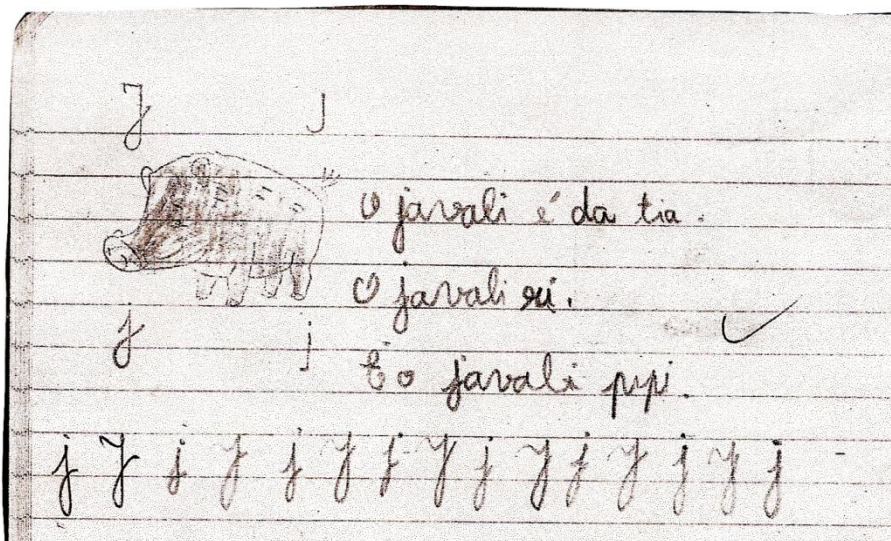 J J
O javali é da tia.
O javali ri.
j j
É o javali pipi.
j J j J j J j J j J j J j J j